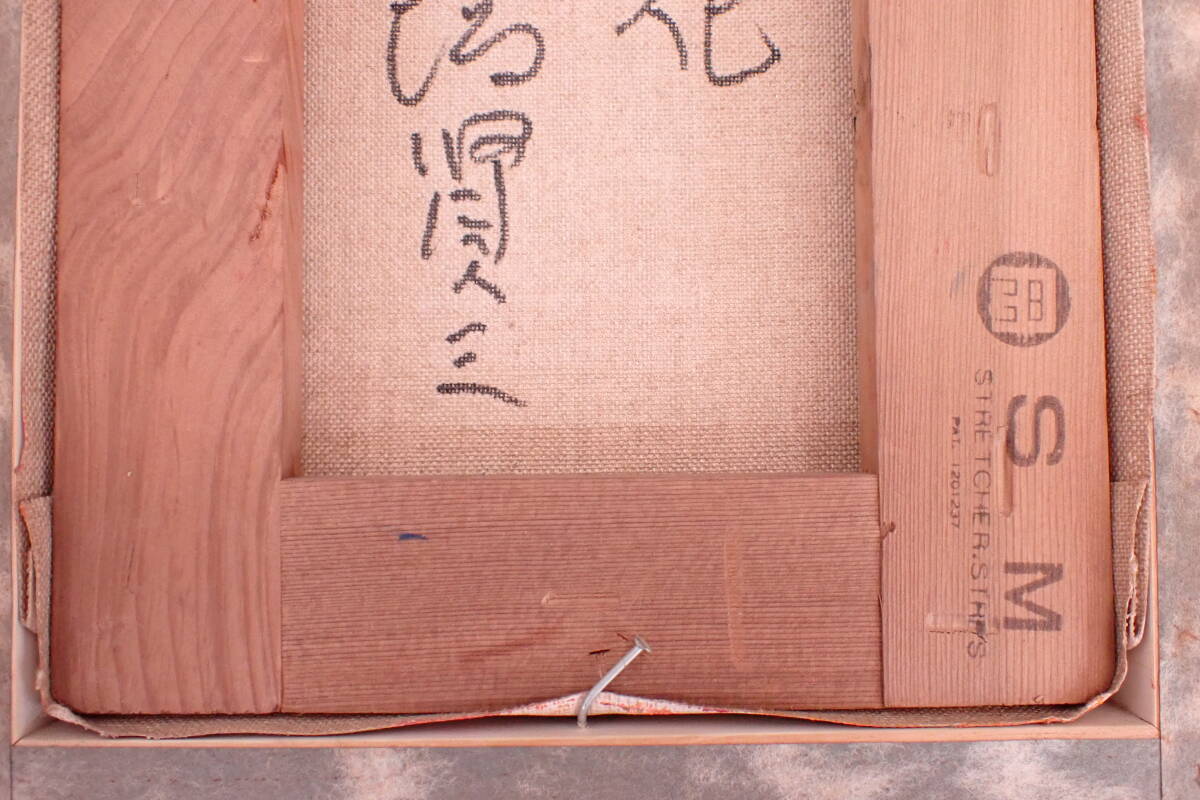 賢三
S M
STRETCHER.STRIPS
PAT. 1201237